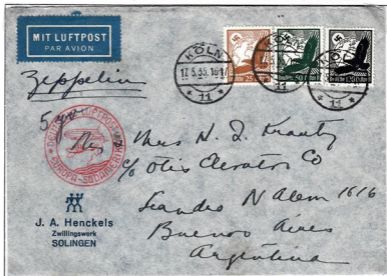 MIT LUFTPOST
PAR AVION
Zeppelin
KÖLN
17.5.35.
* 11 *
25
50
DEUTSCHE LUFTPOST
EUROPA-SÜDAMERIKA
Mrs N. J. Krantz
c/o Otis Elevator Co
Leandro N Alem 1616
Buenos Aires
Argentina
J. A. Henckels
Zwillingswerk
SOLINGEN